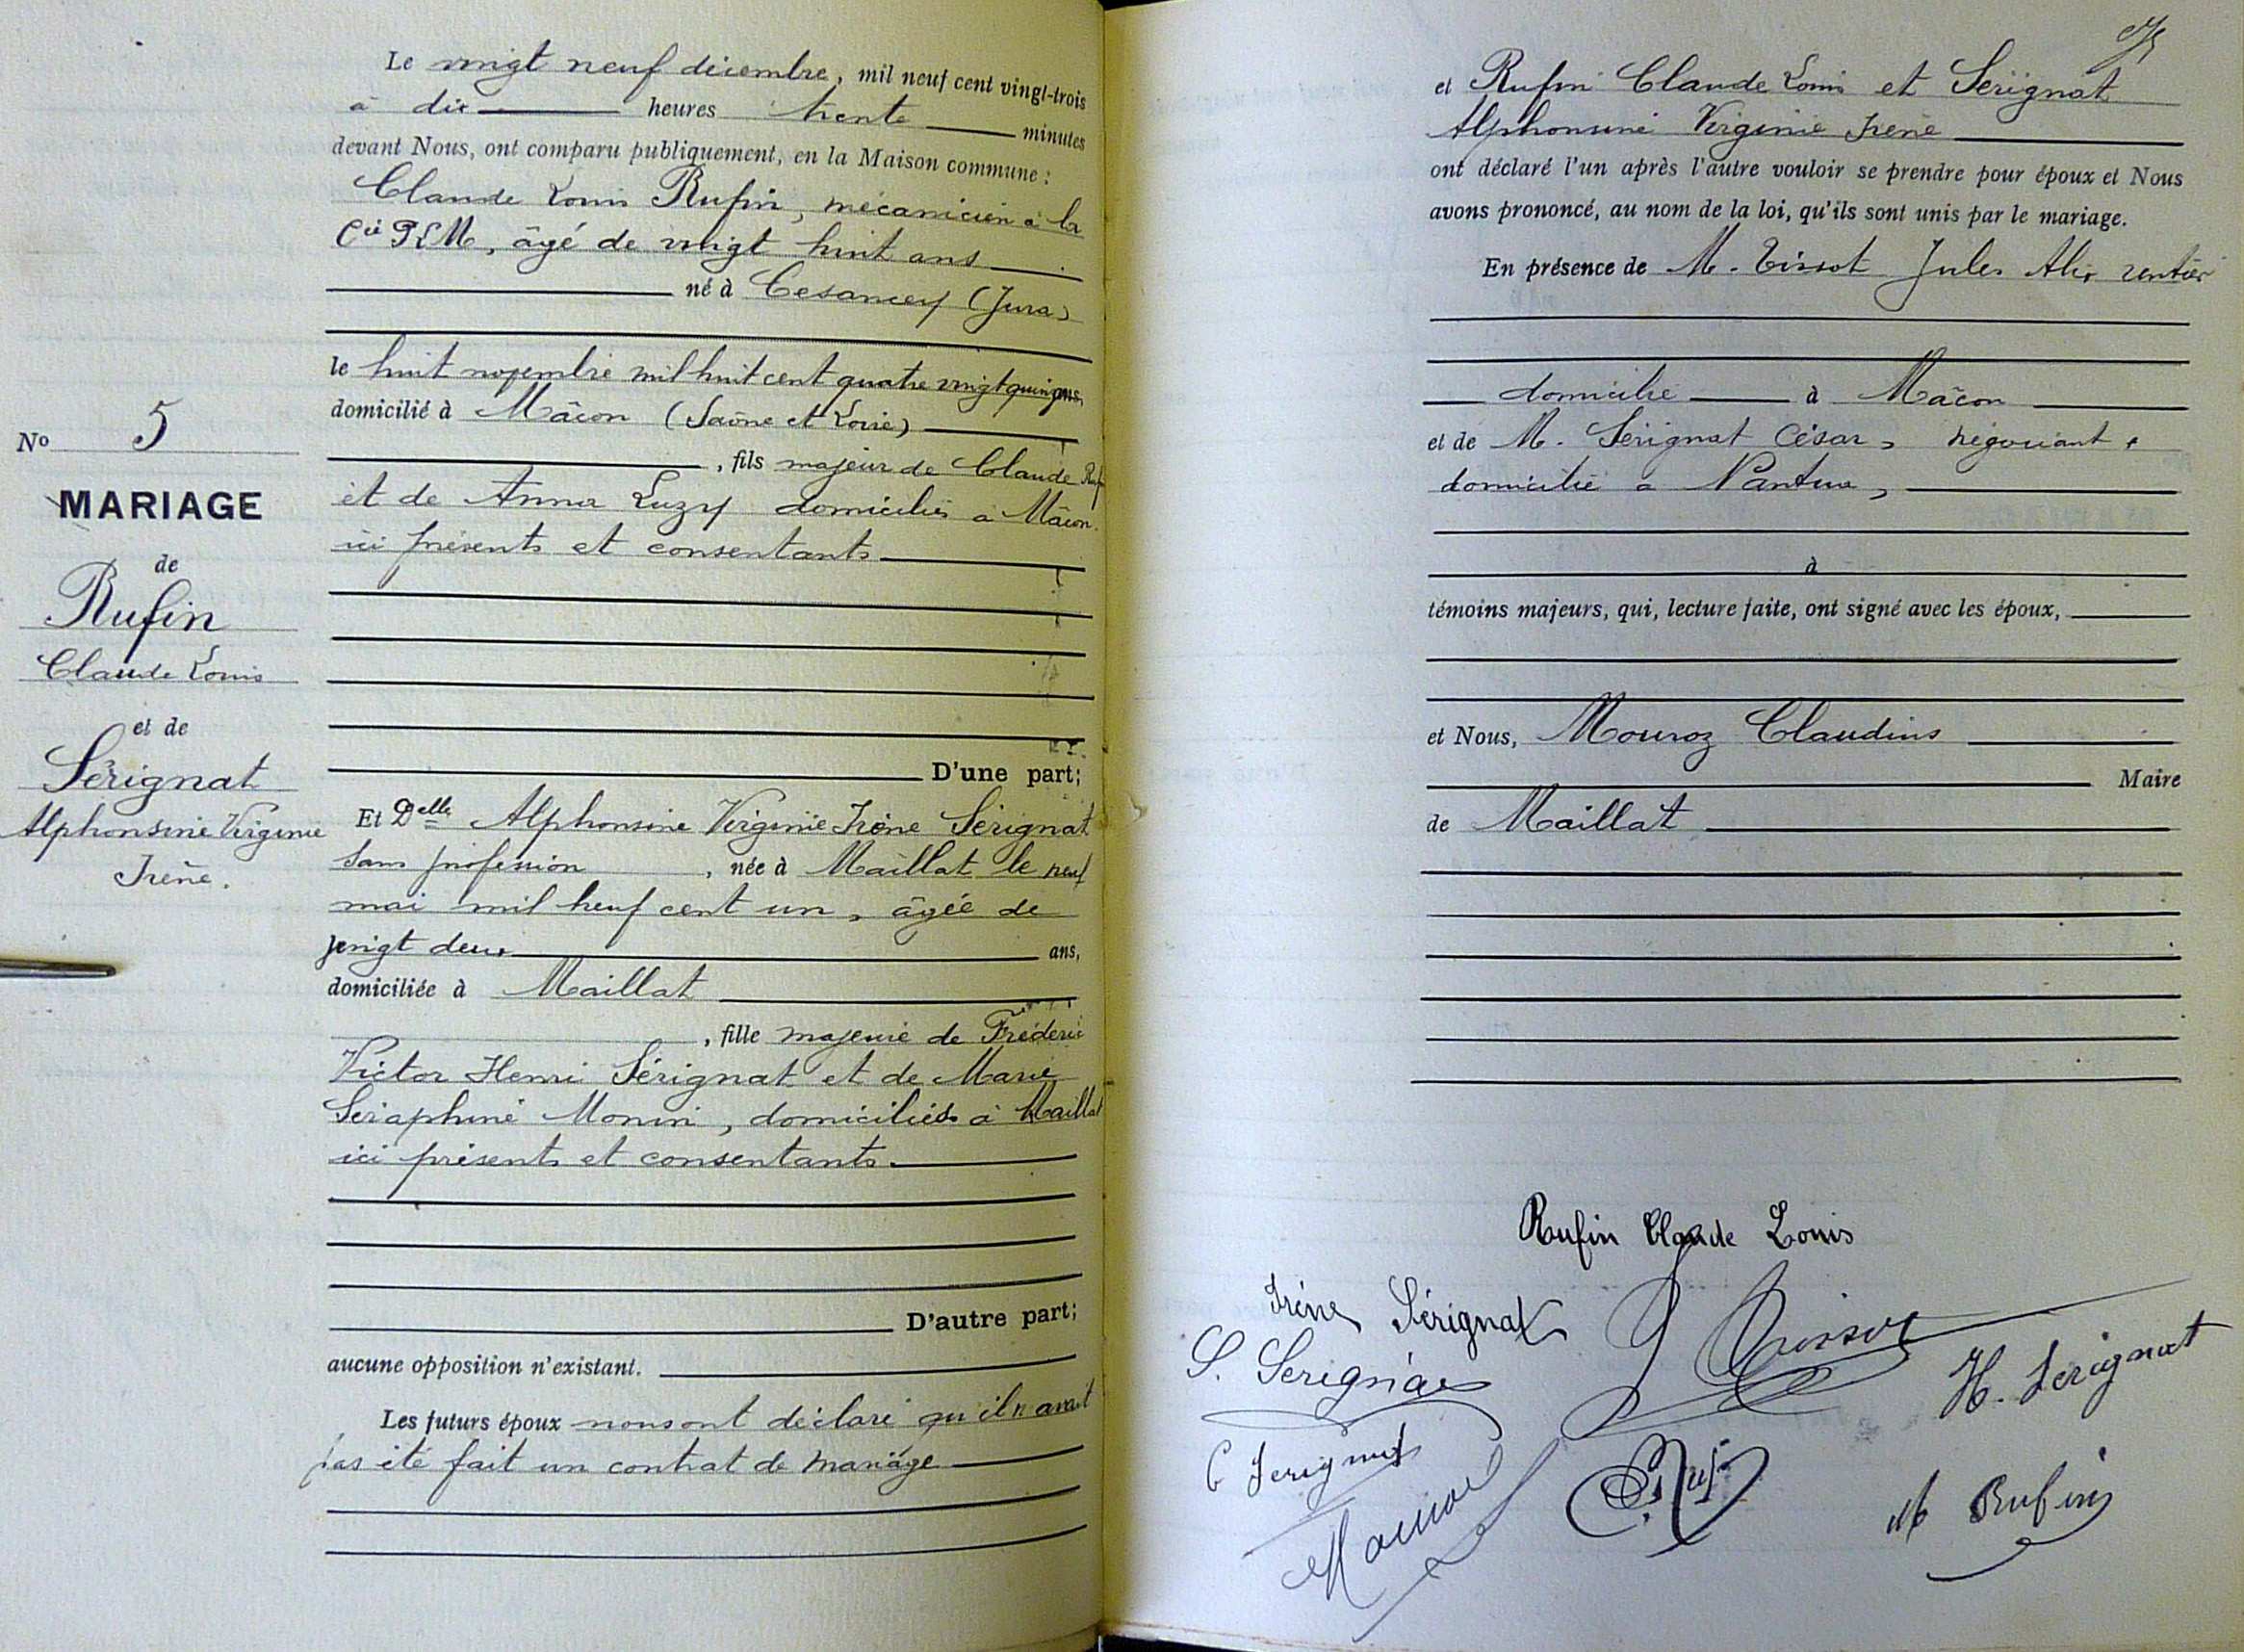 Le vingt neuf décembre, mil neuf cent vingt-trois
à dix heures trente minutes
devant Nous, ont comparu publiquement, en la Maison commune :
Claude Louis Rufin, mécanicien à la
Cie PLM, âgé de vingt huit ans
né à Cesancey (Jura)
le huit novembre mil huit cent quatre vingt quinze,
domicilié à Mâcon (Saône et Loire)
, fils majeur de Claude Rufin
et de Anna Luzy domiciliés à Mâcon
ici présents et consentants
D'une part;
Et Delle Alphonsine Virginie Irène Sérignat
sans profession, née à Maillat le neuf
mai mil neuf cent un, âgée de
vingt deux ans,
domiciliée à Maillat
, fille majeure de Fréderic
Victor Henri Sérignat et de Marie
Séraphine Monin, domiciliés à Maillat
ici présents et consentants.
D'autre part;
aucune opposition n'existant.
Les futurs époux nous ont déclaré qu'il n'avait
pas été fait un contrat de mariage
No 5
MARIAGE
de
Rufin
Claude Louis
et de
Sérignat
Alphonsine Virginie
Irène.
et Rufin Claude Louis et Sérignat
Alphonsine Virginie Irène
ont déclaré l'un après l'autre vouloir se prendre pour époux et Nous
avons prononcé, au nom de la loi, qu'ils sont unis par le mariage.
En présence de M. Tissot Jules rentier
domicilié à Mâcon
et de M. Sérignat César, négociant,
domicilié à Nantua,
à
témoins majeurs, qui, lecture faite, ont signé avec les époux,
et Nous, Mouroz Claudius
Maire
de Maillat
Rufin Claude Louis
Irène Sérignat
S. Serignat
H. Serignat
C Serignat
M Rufin